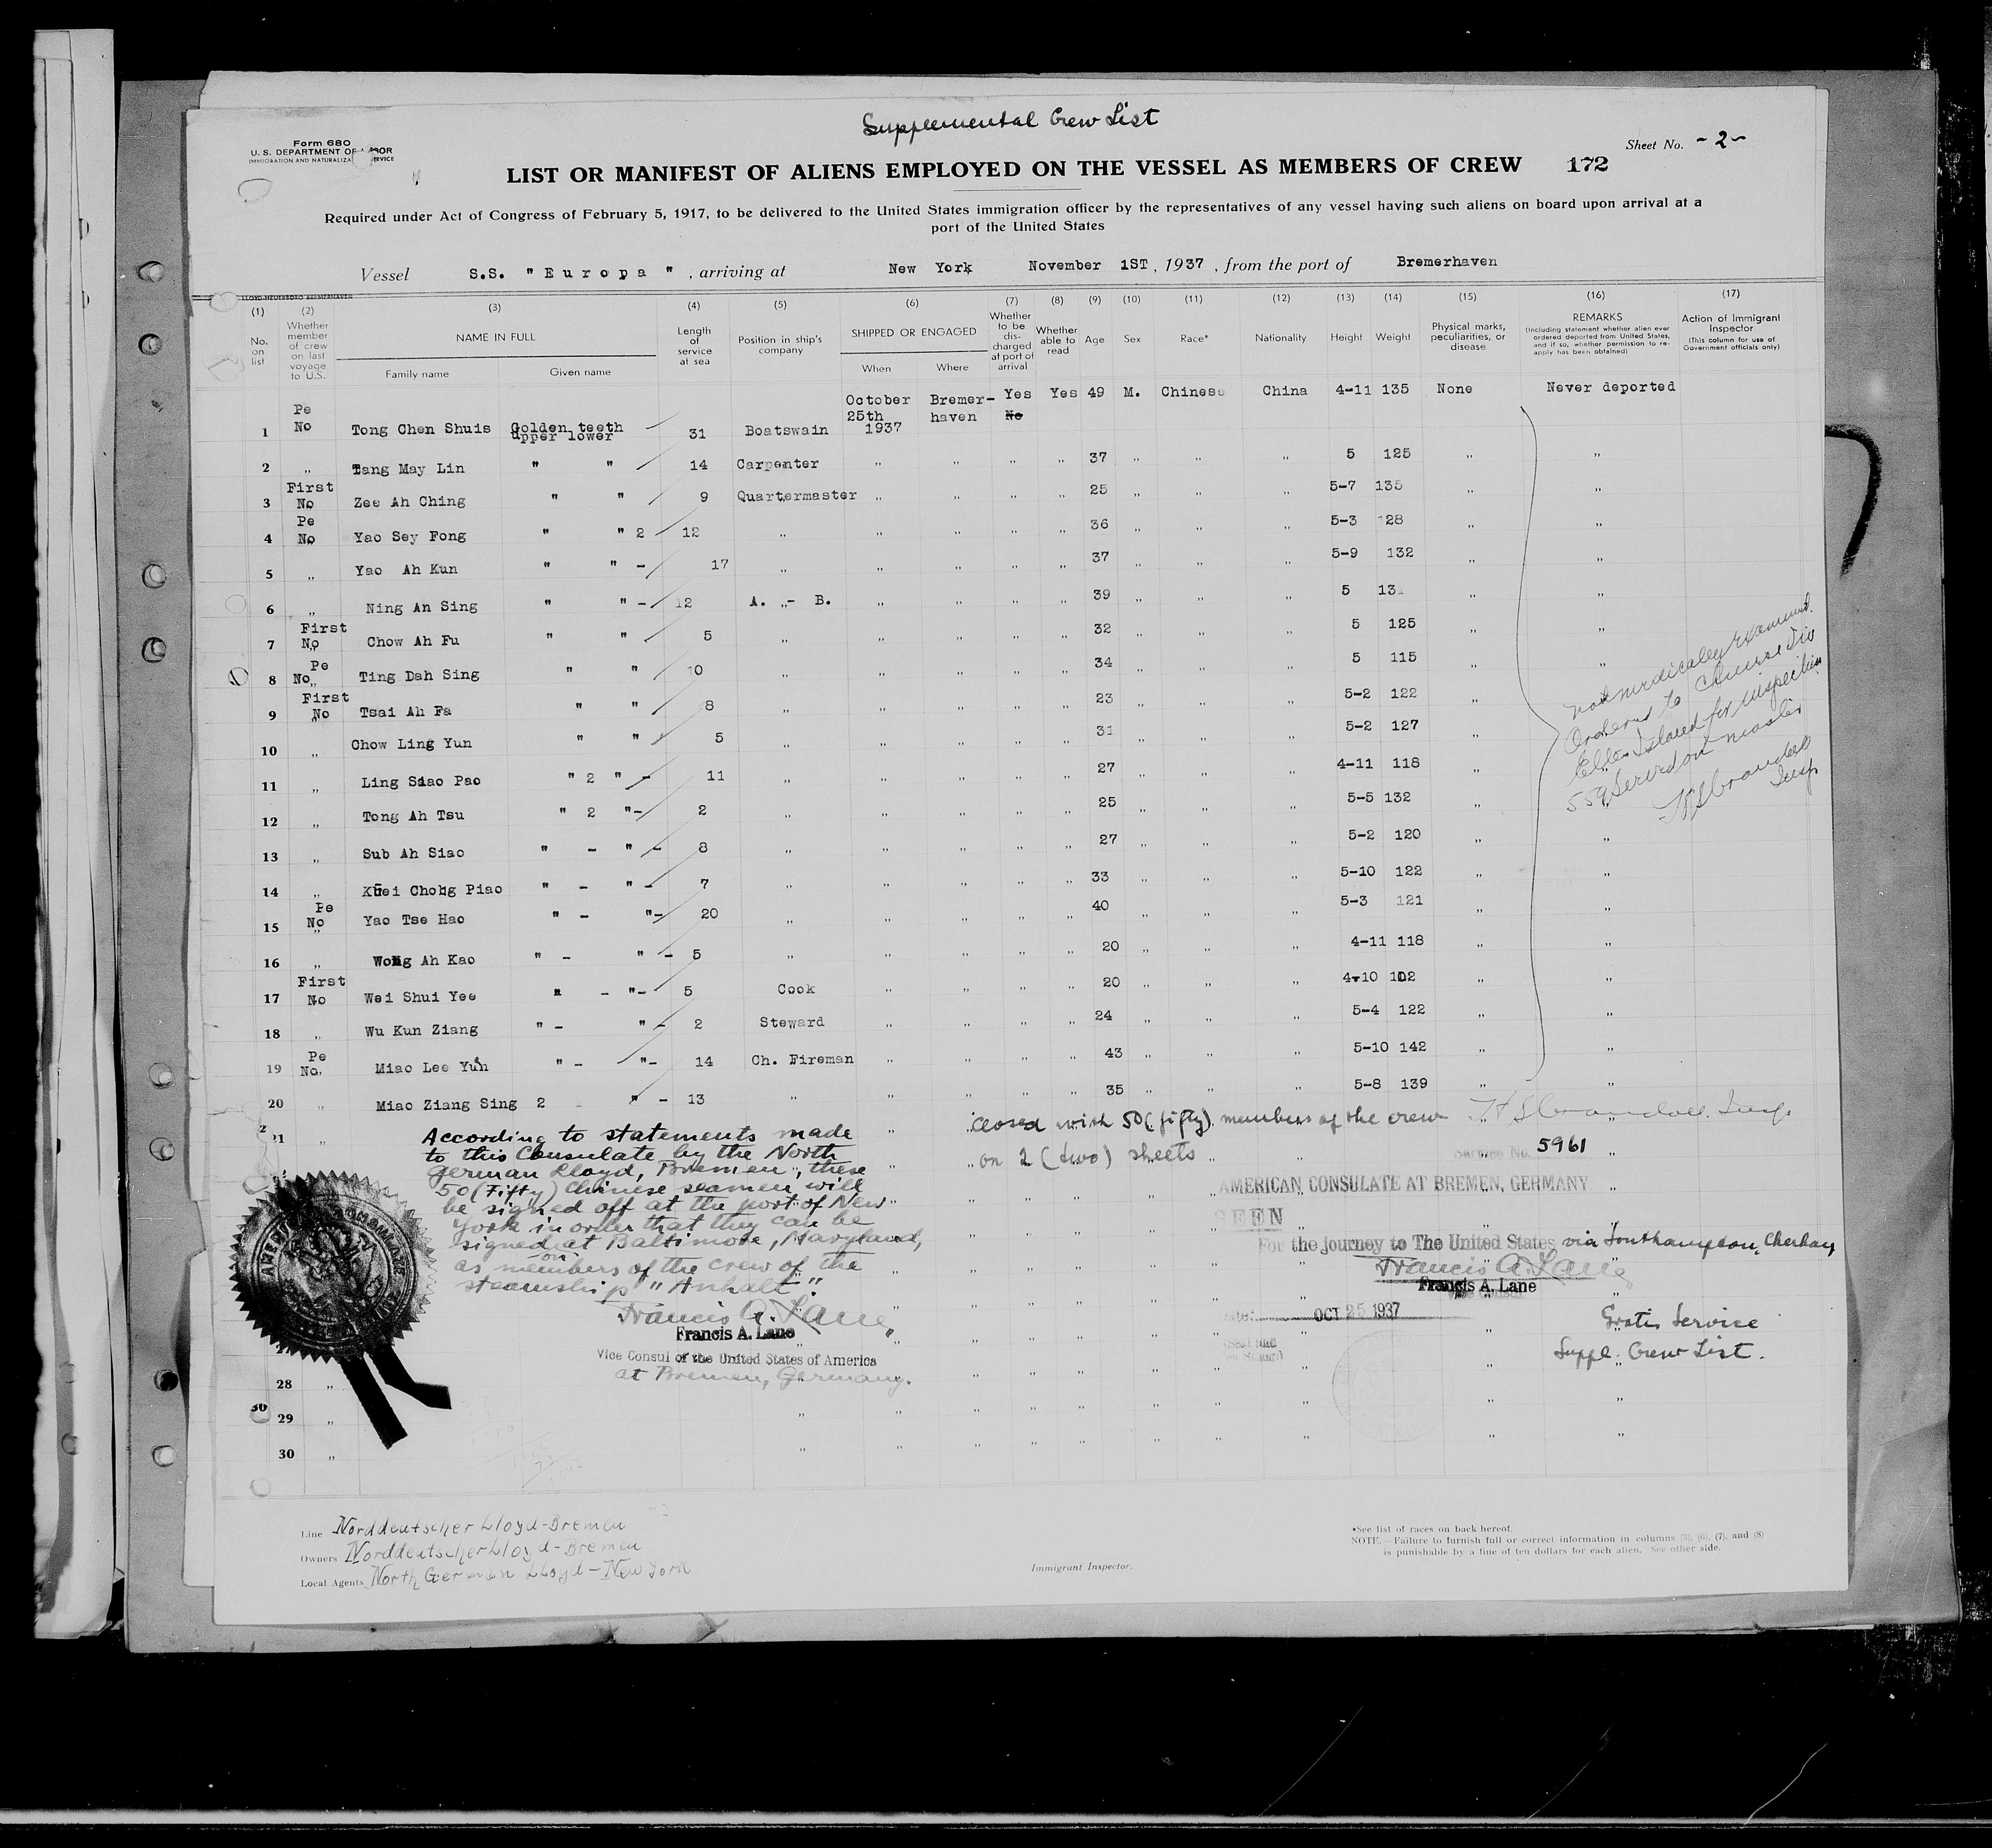 Supplemental Crew List
Form 680
U. S. DEPARTMENT OF LABOR
IMMIGRATION AND NATURALIZA SERVICE
Sheet No. - 2 -
LIST OR MANIFEST OF ALIENS EMPLOYED ON THE VESSEL AS MEMBERS OF CREW 172
Required under Act of Congress of February 5, 1917, to be delivered to the United States immigration officer by the representatives of any vessel having such aliens on board upon arrival at a
port of the United States
Vessel S.S. "Europa", arriving at New York November 1ST, 1937, from the port of Bremerhaven
(1) No. on list
(2) Whether member of crew on last voyage to U.S.
(3) NAME IN FULL Family name Given name
(4) Length of service at sea
(5) Position in ship's company
(6) SHIPPED OR ENGAGED When Where
(7) Whether to be discharged at port of arrival
(8) Whether able to read
(9) Age
(10) Sex
(11) Race*
(12) Nationality
(13) Height
(14) Weight
(15) Physical marks, peculiarities, or disease
(16) REMARKS (Including statement whether alien ever ordered deported from United States, and if so, whether permission to reapply has been obtained)
(17) Action of Immigrant Inspector (This column for use of Government officials only)
1 Pe No Tong Chen Shuis Golden teeth upper lower 31 Boatswain October 25th 1937 Bremerhaven Yes No Yes 49 M. Chinese China 4-11 135 None Never deported
2 " Tang May Lin " " 14 Carpenter " " " " 37 " " " 5 125 " "
3 First No Zee Ah Ching " " 9 Quartermaster " " " " 25 " " " 5-7 135 " "
4 Pe No Yao Sey Fong " " 2 12 " " " " " 36 " " " 5-3 128 " "
5 " Yao Ah Kun " " - 17 " " " " " 37 " " " 5-9 132 " "
6 " Ning An Sing " " - 12 A. - B. " " " " 39 " " " 5 131 " "
7 First No Chow Ah Fu " " 5 " " " " " 32 " " " 5 125 " "
8 Pe No Ting Dah Sing " " 10 " " " " " 34 " " " 5 115 " "
9 First No Tsai Ah Fa " " 8 " " " " " 23 " " " 5-2 122 "
10 " Chow Ling Yun " " 5 " " " " " 31 " " " 5-2 127 "
11 " Ling Siao Pao " 2 " - 11 " " " " " 27 " " " 4-11 118 "
12 " Tong Ah Tsu " 2 " - 2 " " " " " 25 " " " 5-5 132 "
13 " Sub Ah Siao " - " - 8 " " " " " 27 " " " 5-2 120 " "
14 " Kuei Chong Piao " - " - 7 " " " " " 33 " " " 5-10 122 " "
15 Pe No Yao Tse Hao " - " - 20 " " " " " 40 " " " 5-3 121 " "
16 " Wong Ah Kao " - " - 5 " " " " " 20 " " " 4-11 118 " "
17 First No Wei Shui Yee " - " - 5 Cook " " " " 20 " " " 4-10 102 " "
18 " Wu Kun Ziang " - " - 2 Steward " " " " 24 " " " 5-4 122 " "
19 Pe No. Miao Lee Yun " - " - 14 Ch. Fireman " " " " 43 " " " 5-10 142 " "
20 " Miao Ziang Sing 2 " - 13 " " " " " 35 " " " 5-8 139 " "
not medically examined.
Ordered to Chinese Div
Ellis Island for inspection
559 served on master
Insp
21
According to statements made
to this Consulate by the North
German Lloyd, Bremen, these
50 (Fifty) Chinese seamen will
be signed off at the port of New
York in order that they can be
signed on at Baltimore, Maryland,
as members of the crew of the
steamship "Anhalt".
Francis A. Lane
Francis A. Lane
Vice Consul of the United States of America
at Bremen, Germany.
closed with 50 (fifty) members of the crew
on 2 (two) sheets
Insp.
Service No. 5961
AMERICAN CONSULATE AT BREMEN, GERMANY
SEEN
For the journey to The United States via Southampton, Cherbourg
Francis A. Lane
Francis A. Lane
Vice Consul
Date: OCT 25 1937
Gratis Service
Suppl. Crew List.
28
30 29
30
Line Norddeutscher Lloyd-Bremen
Owners Norddeutscher Lloyd-Bremen
Local Agents North German Lloyd-New York
Immigrant Inspector.
*See list of races on back hereof.
NOTE.—Failure to furnish full or correct information in columns (5), (6), (7), and (8)
is punishable by a fine of ten dollars for each alien. See other side.